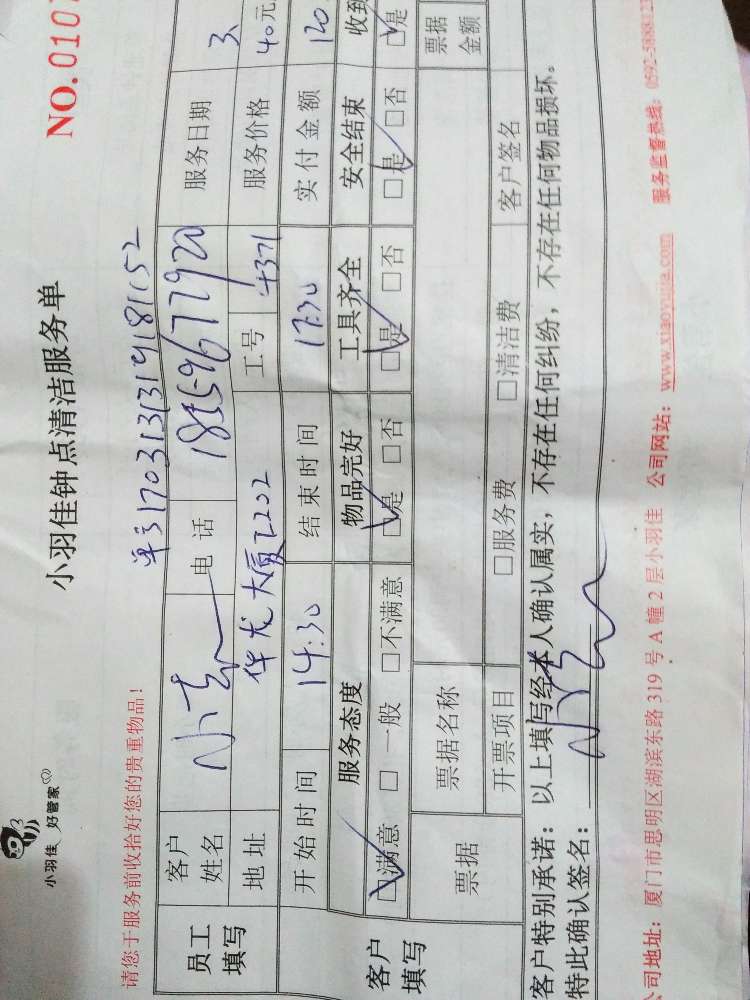 小羽佳 好管家
小羽佳钟点清洁服务单
NO.0107
请您于服务前收拾好您的贵重物品！
单号170313131918152
员工填写 客户姓名 电话 18559677920 服务日期 3.
地址 华龙大厦2202 工号 4371 服务价格 40元
开始时间 14:30 结束时间 17:30 实付金额 120
客户填写 服务态度 物品完好 工具齐全 安全结束 收到
□满意 □一般 □不满意 □是 □否 □是 □否 □是 □否 □是
票据 票据名称 票据金额
开票项目 □服务费 □清洁费 客户签名
客户特别承诺：以上填写经本人确认属实，不存在任何纠纷，不存在任何物品损坏。
特此确认签名：
公司地址：厦门市思明区湖滨东路 319 号 A 幢 2 层小羽佳 公司网站：www.xiaoyujia.com 服务监督热线：0592-5888123